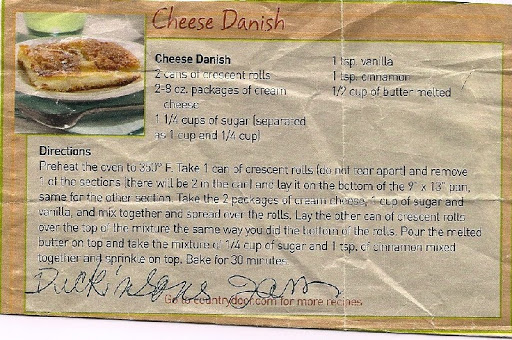 Cheese Danish
Cheese Danish
2 cans of crescent rolls
2-8 oz. packages of cream
cheese
1 1/4 cups of sugar (separated
as 1 cup and 1/4 cup)
1 tsp. vanilla
1 tsp. cinnamon
1/2 cup of butter melted
Directions
Preheat the oven to 350° F. Take 1 can of crescent rolls (do not tear apart) and remove
1 of the sections (there will be 2 in the can) and lay it on the bottom of the 9" x 13" pan,
same for the other section. Take the 2 packages of cream cheese, 1 cup of sugar and
vanilla, and mix together and spread over the rolls. Lay the other can of crescent rolls
over the top of the mixture the same way you did the bottom of the rolls. Pour the melted
butter on top and take the mixture of 1/4 cup of sugar and 1 tsp. of cinnamon mixed
together and sprinkle on top. Bake for 30 minutes.
Go to countrydoor.com for more recipes
Jam